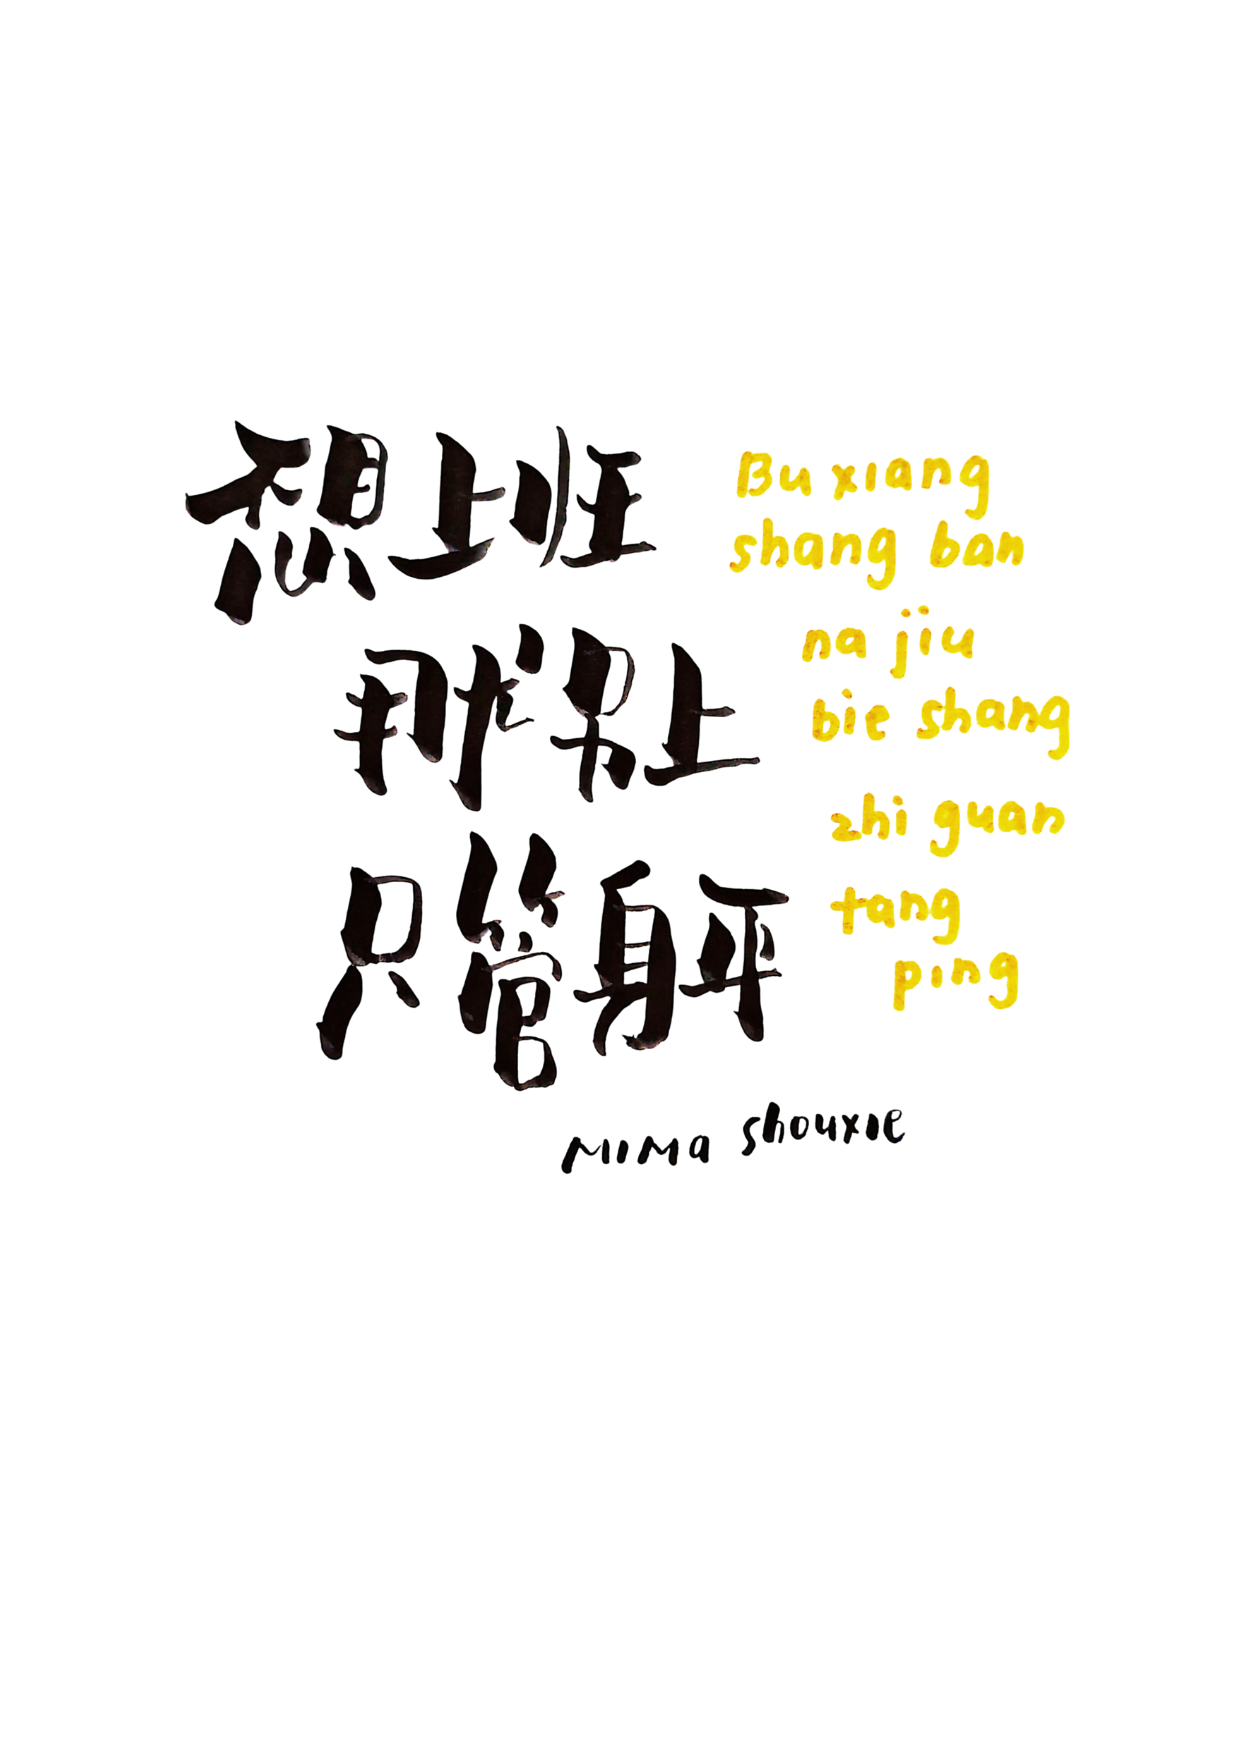 不想上班
那就别上
只管躺平
Bu xiang
shang ban
na jiu
bie shang
zhi guan
tang
ping
MIMa shouxie